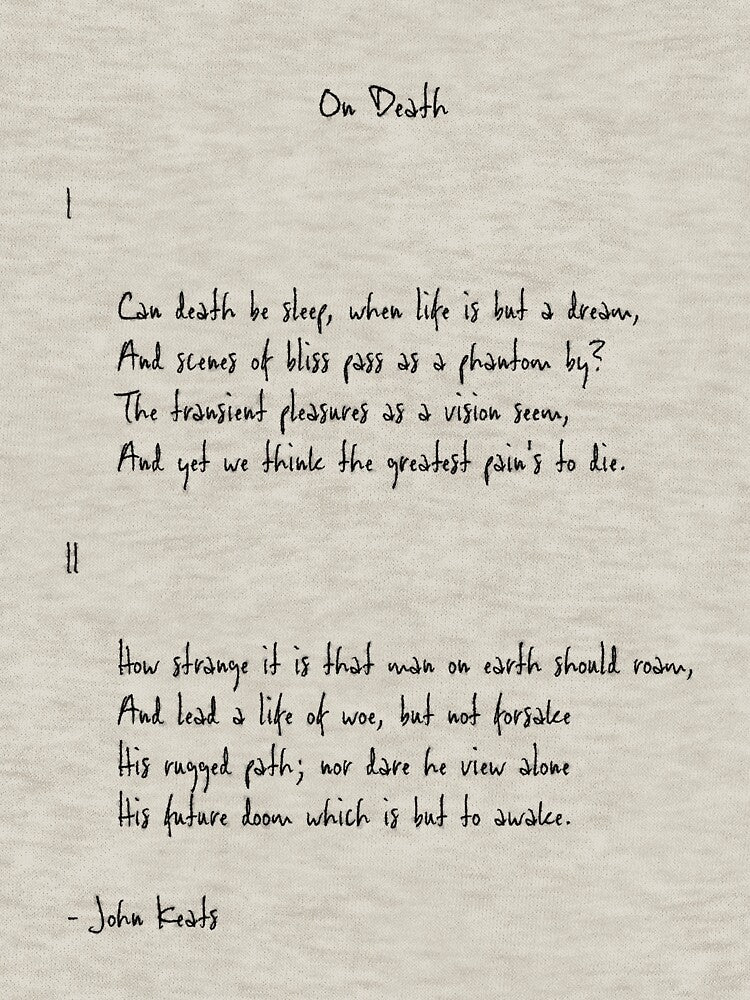 On Death
I
Can death be sleep, when life is but a dream,
And scenes of bliss pass as a phantom by?
The transient pleasures as a vision seem,
And yet we think the greatest pain's to die.
II
How strange it is that man on earth should roam,
And lead a life of woe, but not forsake
His rugged path; nor dare he view alone
His future doom which is but to awake.
- John Keats